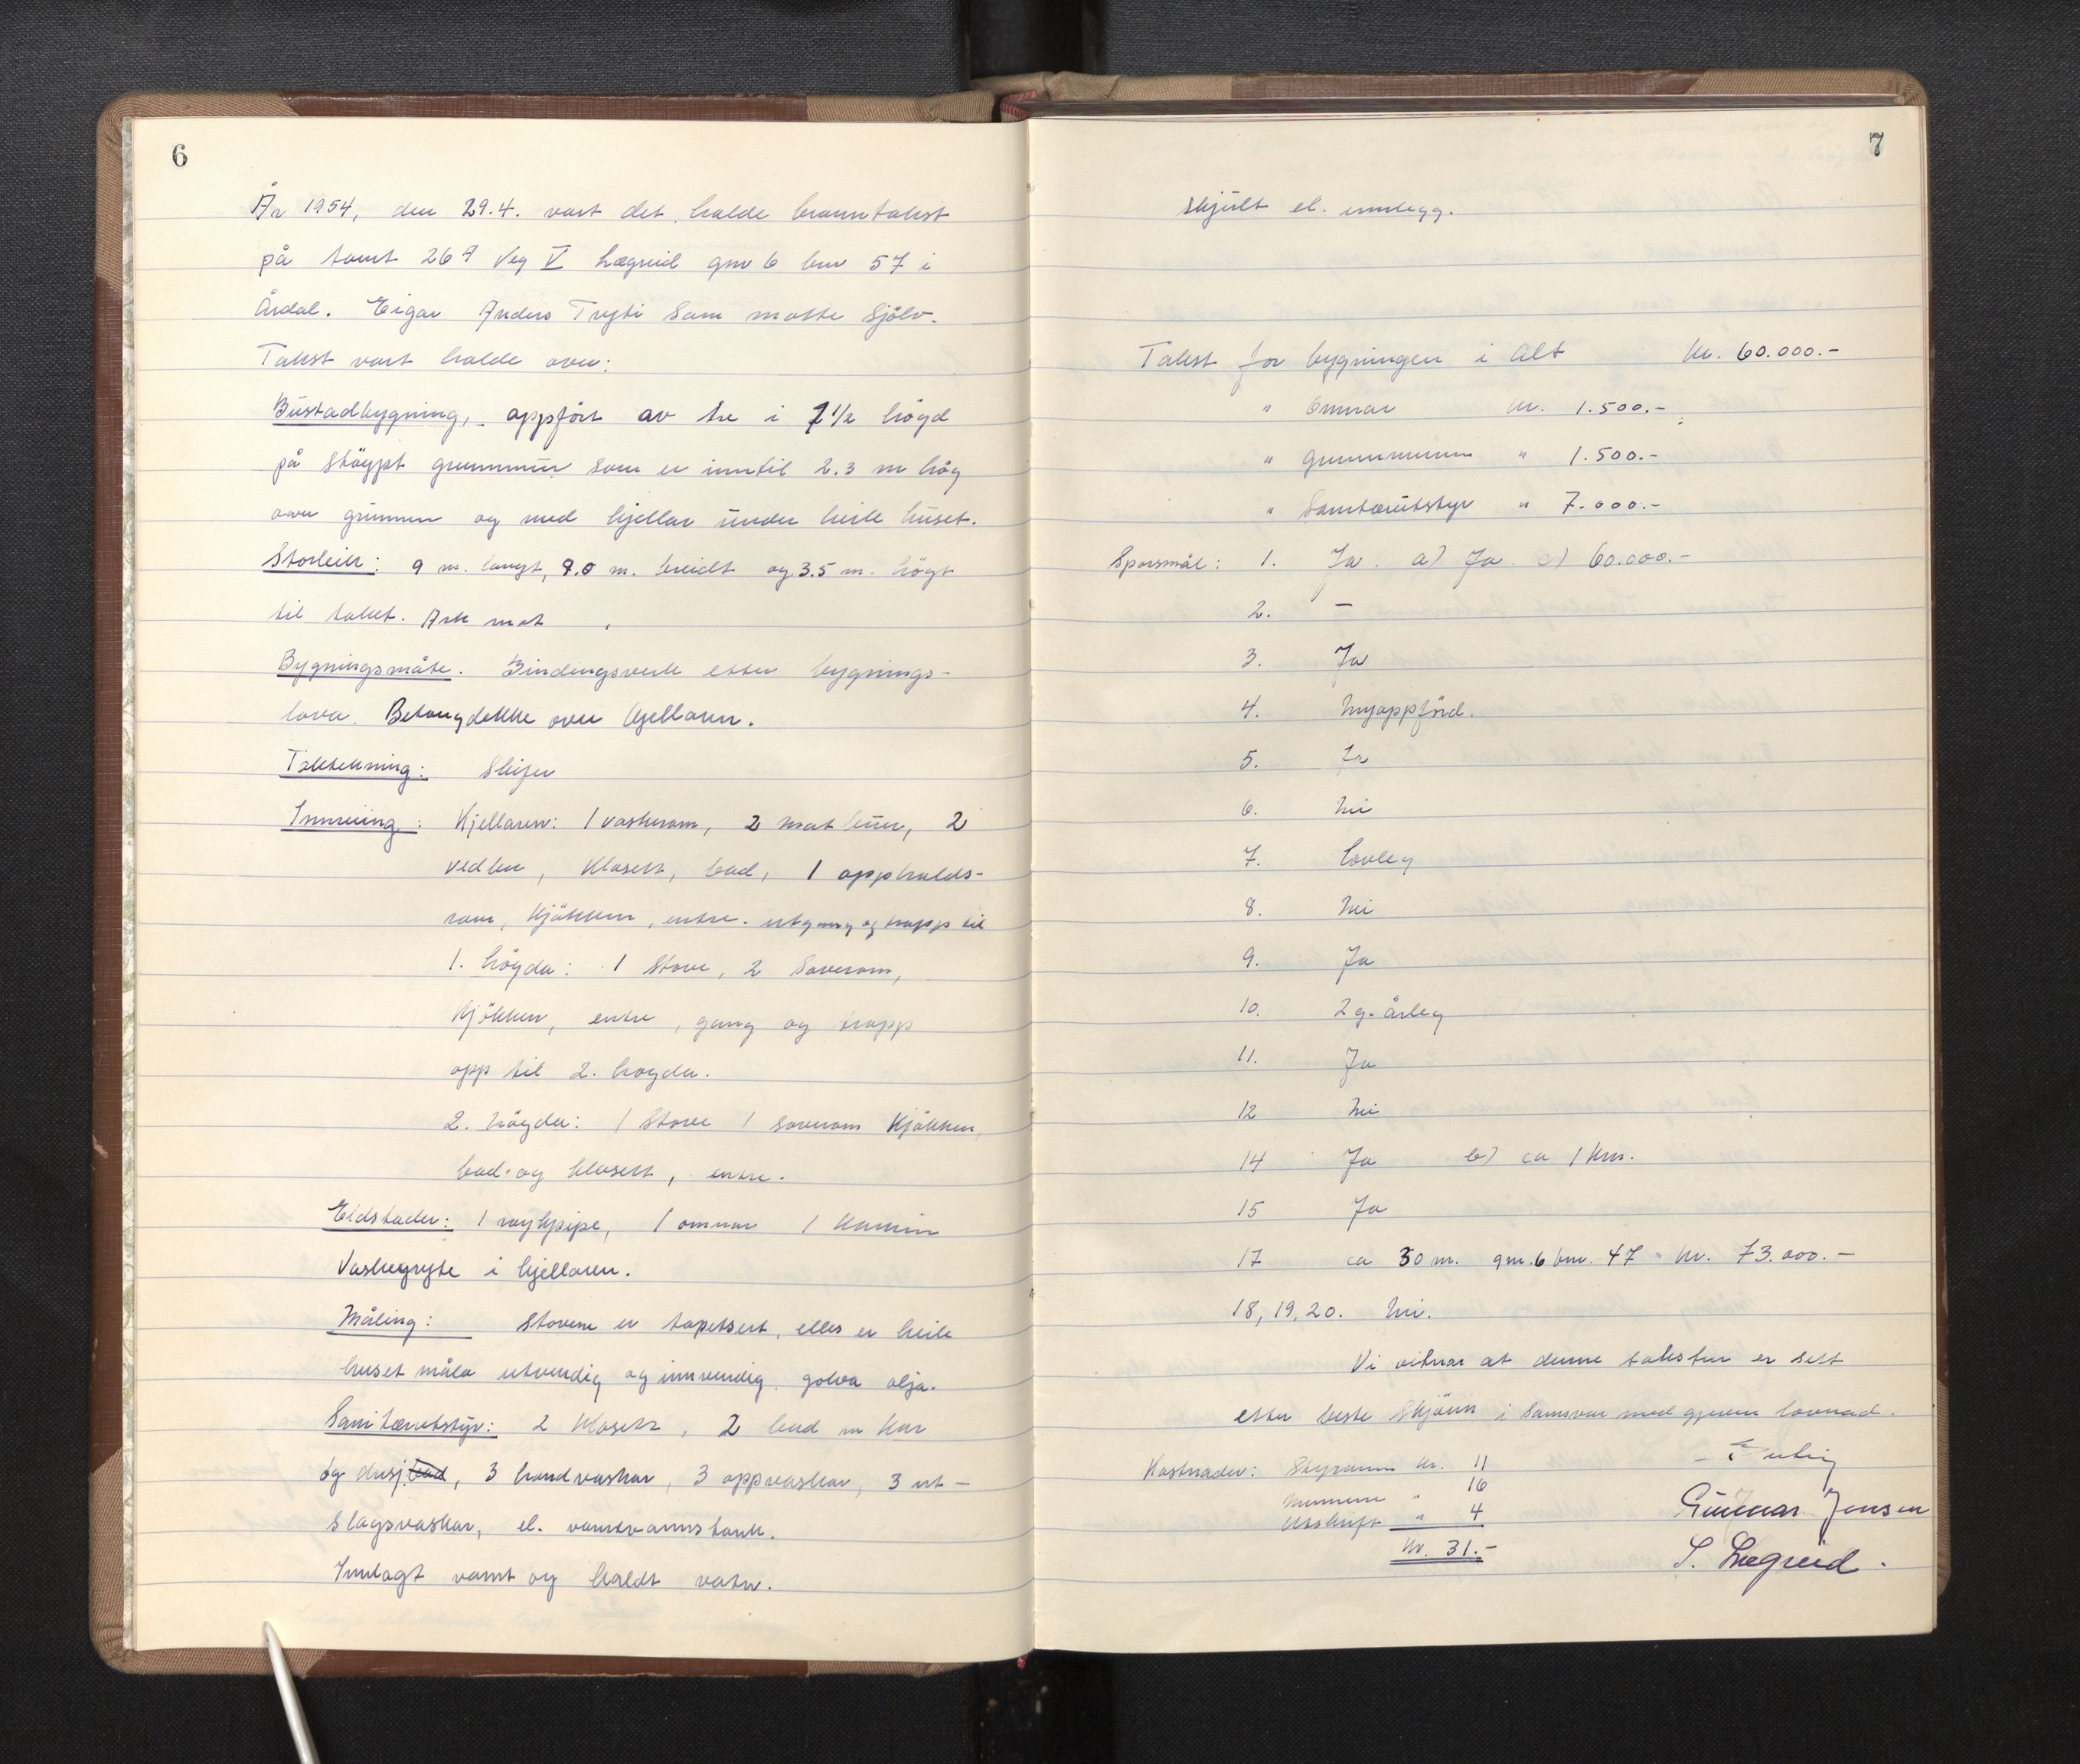 6
År 1954, den 29.4. vart det halde branntakst
på tomt 267 Veg V Lægreid gnr 6 bnr 57 i
Årdal. Eigar Anders Tryti som møtte sjölv.
Takst vart halde over:
Bustadbygning, oppfört av tre i 1 1/2 högd
på stöypt grunnmur som er inntil 2.3 m hög
over grunnen og med kjellar under heile huset.
Storleik: 9 m. langt, 8.0 m. breidt og 3.5 m. högt
til taket. Ark mot
Bygningsmåte. Bindingsverk etter bygnings-
lova. Betongdekke over kjellaren.
Taktekning: Skifer
Innreiing: Kjellaren: 1 vaskerom, 2 matbuer, 2
vedbu, klosett, bad, 1 opphalds-
rom, kjökken, entre. utgang og trapp til
1. högda: 1 stove, 2 soverom,
Kjökken, entre, gang og trapp
opp til 2. hogda.
2. högda: 1 stove 1 soverom kjökken,
bad og klosett, entre.
Eldstader: 1 røykpipe, 1 omnar 1 kamin
Vaskegryte i kjellaren.
Måling: Stovene er tapetsert, elles er heile
huset måla utvendig og innvendig, golva olja.
Sanitærutstyr: 2 klosett, 2 bad m kar
og dusj bad, 3 handvaskar, 3 oppvaskar, 3 ut-
slagsvaskar, el. varmtvannstank.
Innlagt varmt og kaldt vatn.
7
skjult el. innlegg.
Takst for bygningen i alt kr. 60.000.-
" Omnar kr. 1.500.-
" grunnmuren " 1.500.-
" Sanitærutstyr " 7.000.-
Sporsmål: 1. Ja. a) Ja c) 60.000.-
2. -
3. Ja
4. Nyoppförd.
5. Ja
6. Nei
7. Lovleg
8. Nei
9. Ja
10. 2 g. årleg
11. Ja
12 Nei
14 Ja b) ca 1 km.
15 Ja
17 ca 30 m. gnr. 6 bnr. 47 " kr. 73.000.-
18, 19, 20. Nei.
Vi vitnar at denne taksten er sett
etter beste skjönn i samsvar med gjeven lovnad.
Kostnader: Skysspenn kr. 11
16
Utskrift " 4
kr. 31.-
Gunnar Jensen
S. Lægreid.